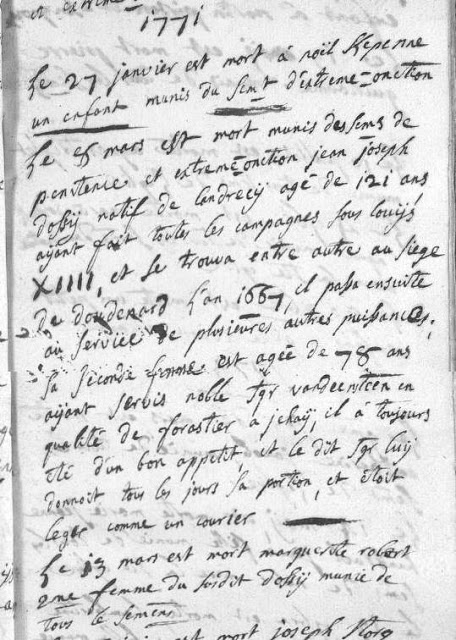 et extreme
1771
Le 27 janvier est mort à noël Kepenne
un enfant munis du semt d'extreme-onction
Le 8 mars est mort munis des sems de
penitence et extreme-onction jean joseph
dossij natif de Landrecij agé de 121 ans
ayant fait toutes les campagnes sous louijs
XIIII, et se trouva entre autre au siege
de doudenard l'an 1667, il passa ensuite
au service de plusieures autres puissances,
sa seconde femme est agée de 78 ans
ayant servis noble sgr vandensteen en
qualité de forastier a jehaij, il à toujours
eté d'un bon appetit et le dit sgr luij
donnoit tous les jours sa portion, et etoit
leger comme un courier
Le 13 mars est mort marguerite robert
2me femme du susdit dossij munie de
tous le semens
est mort joseph